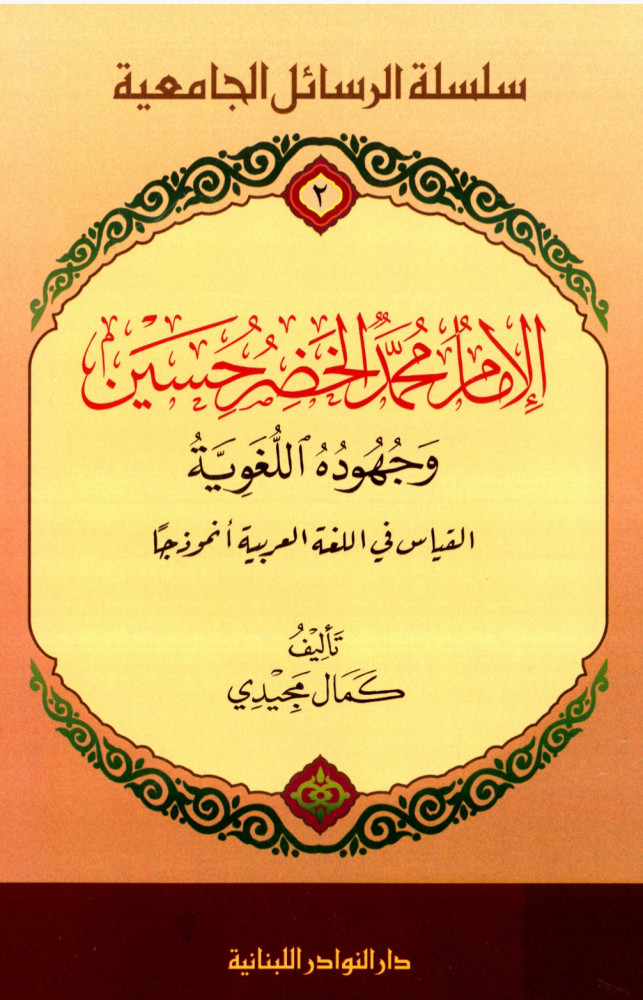 سلسلة الرسائل الجامعية
٢
الإمامُ محمَّدُ الخَضِر حُسَين
وَجُهُودُهُ اللُّغَوِيَّةُ
القياس في اللغة العربية أنموذجًا
تَأليفُ
كَمَال مَجيْدِي
دار النوادر اللبنانية